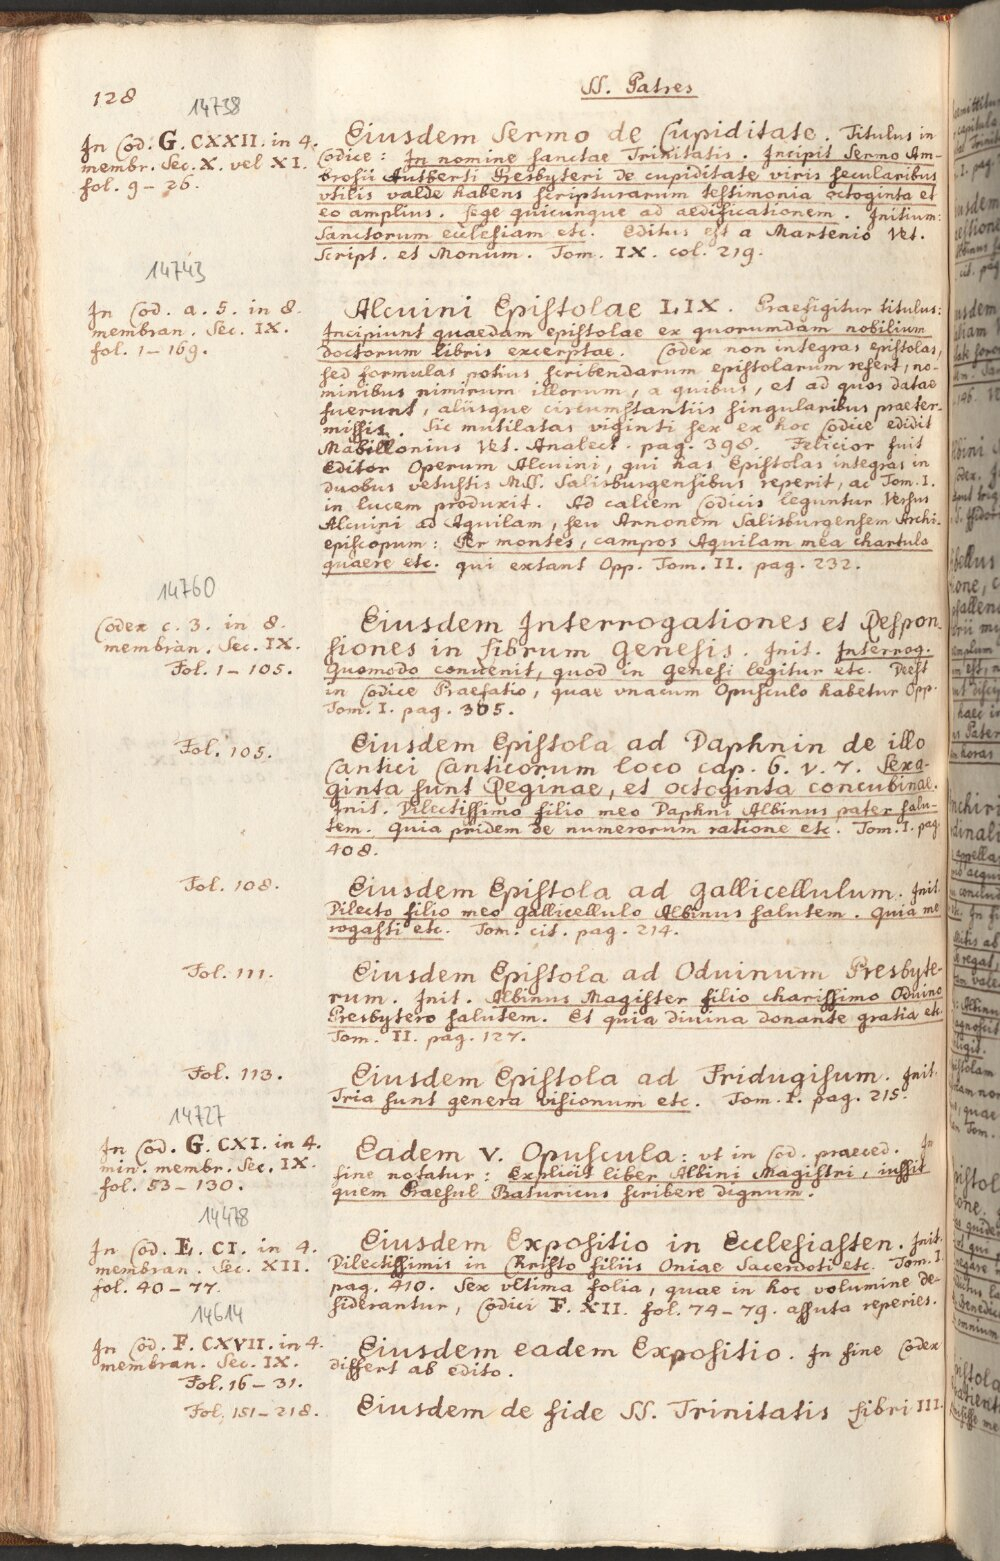 128
SS. Patres
14738
In Cod. G. CXXII. in 4.
membr. Sec. X. vel XI.
fol. 9–26.
Eiusdem Sermo de Cupiditate. Titulus in
Codice: In nomine sanctae Trinitatis. Incipit Sermo Am-
brosii Autberti Presbyteri de cupiditate viris secularibus
vtilis valde habens scripturarum testimonia octoginta et
eo amplius. Lege quicunque ad aedificationem. Initium:
Sanctorum ecclesiam etc. Editus est a Martenio Vet.
Script. et Monum. Tom. IX. col. 219.
14743
In Cod. a. 5. in 8.
membran. Sec. IX.
fol. 1–169.
Alcuini Epistolae LIX. Praefigitur titulus:
Incipiunt quaedam epistolae ex quorumdam nobilium
doctorum libris excerptae. Codex non integras epistolas,
sed formulas potius scribendarum epistolarum refert, no-
minibus nimirum illorum, a quibus, et ad quos datae
fuerunt, aliisque circumstantiis singularibus praeter-
missis. Sic mutilatas viginti sex ex hoc Codice edidit
Mabillonius Vet. Analect. pag. 398. Felicior fuit
Editor Operum Alcuini, qui has Epistolas integras in
duobus vetustis MSS. Salisburgensibus reperit, ac Tom. I.
in lucem produxit. Ad calcem Codicis leguntur Versus
Alcuini ad Aquilam, seu Arnonem Salisburgensem Archi-
episcopum: Per montes, campos Aquilam mea chartula
quaere etc. qui extant Opp. Tom. II. pag. 232.
14760
Codex c. 3. in 8.
membran. Sec. IX.
Fol. 1–105.
Eiusdem Interrogationes et Respon-
siones in Librum Genesis. Init. Interrog.
Quomodo conuenit, quod in Genesi legitur etc. Deest
in Codice Praefatio, quae vnacum Opusculo habetur Opp.
Tom. I. pag. 305.
Fol. 105.
Eiusdem Epistola ad Daphnin de illo
Cantici Canticorum loco cap. 6. v. 7. Sexa-
ginta sunt Reginae, et octoginta concubinae.
Init. Dilectissimo filio meo Daphni Albinus pater salu-
tem. Quia pridem de numerorum ratione etc. Tom. I. pag.
408.
Fol. 108.
Eiusdem Epistola ad Gallicellulum. Init.
Dilecto filio meo Gallicellulo Albinus salutem. Quia me
rogasti etc. Tom. cit. pag. 214.
Fol. 111.
Eiusdem Epistola ad Oduinum Presbyte-
rum. Init. Albinus Magister filio charissimo Oduino
Presbytero salutem. Et quia diuina donante gratia etc.
Tom. II. pag. 127.
Fol. 113.
Eiusdem Epistola ad Fridugisum. Init.
Tria sunt genera visionum etc. Tom. I. pag. 215.
14727
In Cod. G. CXI. in 4.
min. membr. Sec. IX.
fol. 53–130.
Eadem V. Opuscula: vt in Cod. praeced. In
fine notatur: Explicit liber Albini Magistri, iussit
quem Praesul Baturicus scribere dignum.
14478
In Cod. E. CI. in 4.
membran. Sec. XII.
fol. 40–77.
Eiusdem Expositio in Ecclesiasten. Init.
Dilectissimis in Christo filiis Oniae Sacerdoti etc. Tom. I.
pag. 410. Sex vltima folia, quae in hoc volumine de-
siderantur, Codici F. XII. fol. 74–79. assuta reperies.
14614
In Cod. F. CXVII. in 4.
membran. Sec. IX.
Fol. 16–31.
Eiusdem eadem Expositio. In fine Codex
differt ab edito.
Fol. 151–218.
Eiusdem de fide SS. Trinitatis Libri III.